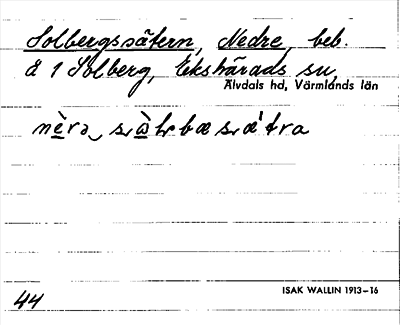 Solbergssätern, Nedre, beb.
å 1 Solberg, Ekshärads sn,
Älvdals hd, Värmlands län
ISAK WALLIN 1913–16
44